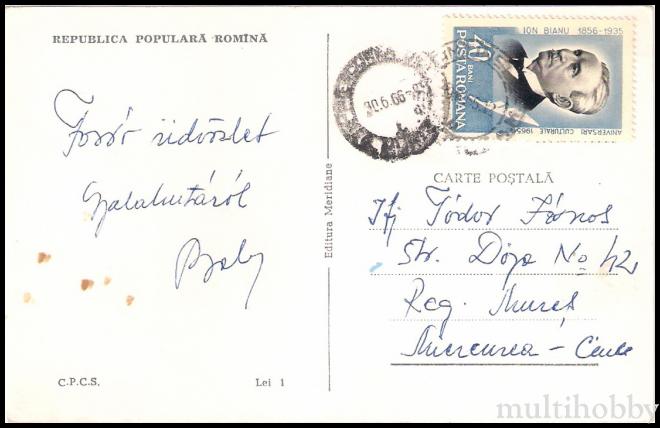 REPUBLICA POPULARĂ ROMÎNĂ
Forró üdvözlet
Szalalutáról
C.P.C.S.
Lei 1
Editura Meridiane
30.6.66
ION BIANU 1856-1935
40 BANI
POSTA ROMANA
ANIVERSARI CULTURALE 1965
CARTE POȘTALĂ
Ifj Tódor János
Str. Dója No 42
Reg. Mureș
Miercurea - Ciuc
multihobby